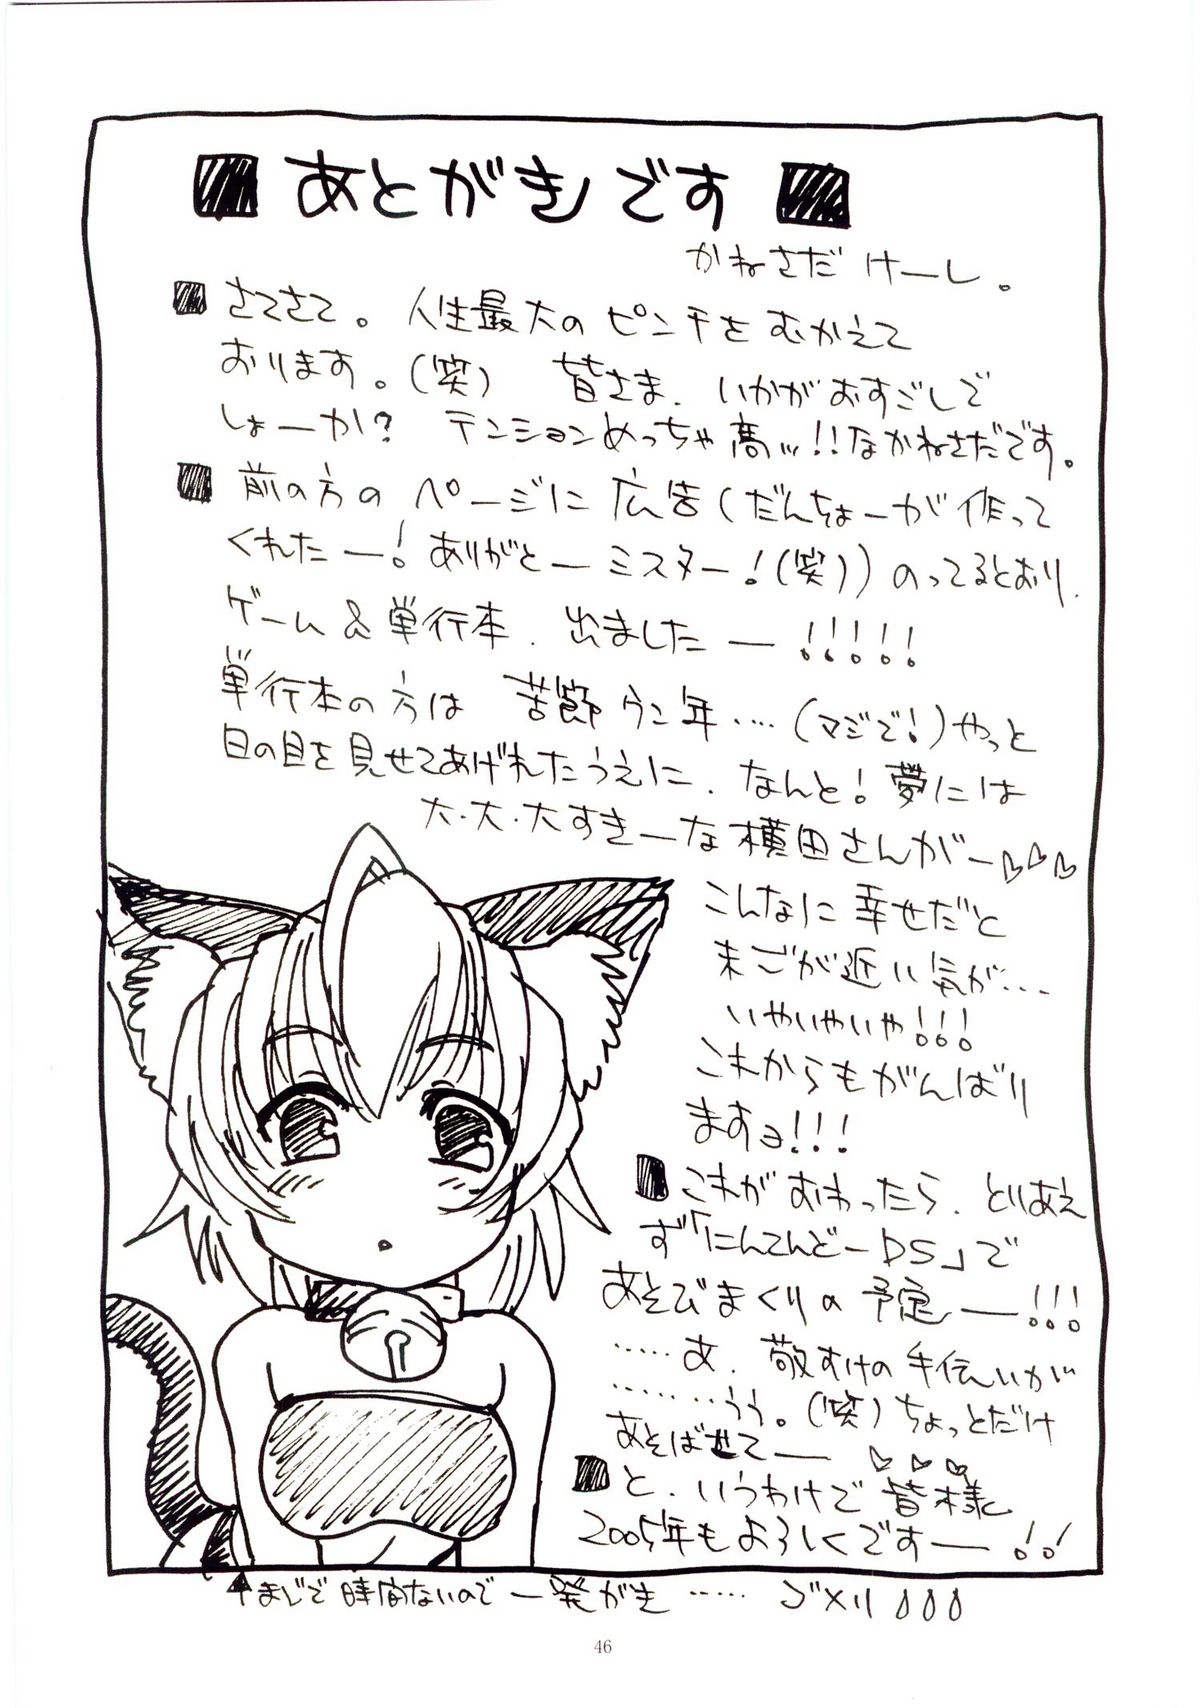 ■ あとがきです ■
かねさだ けーし。
■ さてさて。人生最大のピンチをむかえて
おります。(笑) 皆さま、いかがおすごしで
しょーか? テンションめっちゃ高ッ!!なかねさだです。
■ 前の方のページに広告(だんちょーが作って
くれたー!ありがとーミスター!(笑))のってるとおり、
ゲーム&単行本、出ましたー!!!!!
単行本の方は苦節ウン年‥‥(マジで!)やっと
日の目を見せてあげれたうえに、なんと!夢には
大・大・大すきーな横田さんがー♡♡♡
こんなに幸せだと
末ごが近い気が…
いやいやいや!!!
これからもがんばり
ますョ!!!
■ これがおわったら、とりあえ
ず「にんてんどーDS」で
あそびまくりの予定ー!!!
‥‥‥あ、敬すけの手伝いが
‥‥‥‥うう。(笑)ちょっとだけ
あそばせてー ♡♡♡
■ と、いうわけで皆様
2005年もよろしくですー!!
↑まじで時間ないので一発がき ‥‥‥ ゴメリ
46